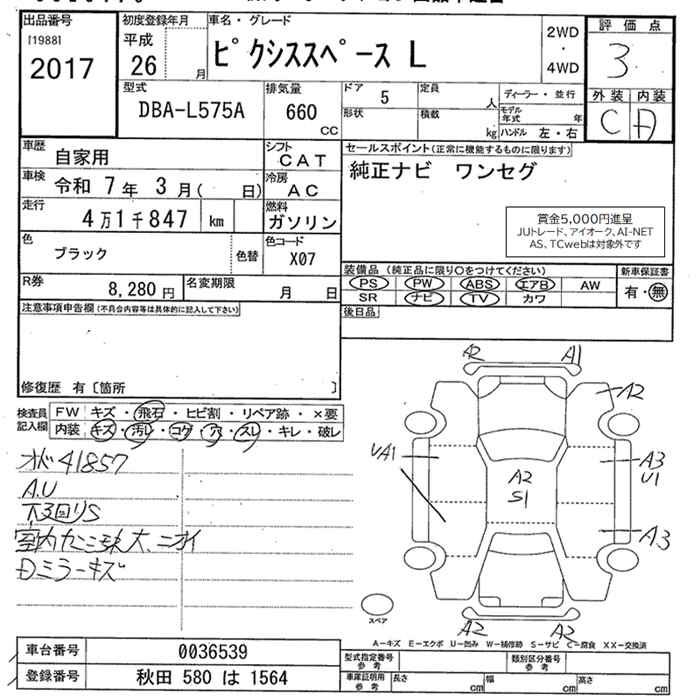 出品番号
[1988]
2017
初度登録年月
平成
26 月
車名・グレード
ピクシススペース L
2WD
・
4WD
評価点
3
外装 内装
C D
型式
DBA-L575A
排気量
660
cc
ドア 5
定員
人
形状
積載
kg
ディーラー・並行
モデル年式 年
ハンドル 左・右
車歴
自家用
シフト
CAT
車検
令和 7年 3月( 日)
冷房
AC
走行
4万1千847 km
燃料
ガソリン
色
ブラック
色替
色コード
X07
R券
8,280円
名変期限
月 日
セールスポイント(正常に機能するものに限ります)
純正ナビ ワンセグ
賞金5,000円進呈
JUトレード、アイオーク、AI-NET
AS、TCwebは対象外です
装備品(純正品に限り○をつけてください)
PS PW ABS エアB AW
SR ナビ TV カワ
新車保証書
有・無
後日品
注意事項申告欄(不具合内容等は具体的に記入して下さい)
修復歴 有〔箇所 〕
検査員記入欄
FW キズ・飛石・ヒビ割・リペア跡・×要
内装 キズ・汚レ・コゲ・穴・スレ・キレ・破レ
オド41857
A.U
下回りS
大、ニオイ
Dミラーキズ
A2 A1
A2
UA1
A3
U1
A2
S1
A3
A2 A2
スペア
A−キズ E−エクボ U−凹み W−補修跡 S−サビ C−腐食 XX−交換済
車台番号 0036539
登録番号 秋田 580 は 1564
型式指定番号参考
類別区分番号参考
車庫証明用参考
長さ cm
幅 cm
高さ cm